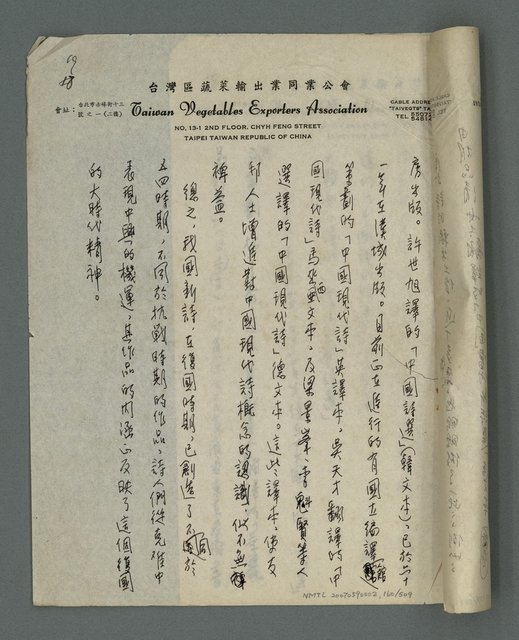 台灣區蔬菜輸出業同業公會
會址：台北市赤峰街十三號之一（二樓）
Taiwan Vegetables Exporters Association
NO. 13-1 2ND FLOOR. CHYH FENG STREET
TAIPEI TAIWAN REPUBLIC OF CHINA
CABLE ADDRE
"TAIVEGTS" TA
TEL
房出版。許世旭譯的「中國詩選」（韓文本），已於六十
一年在漢城出版。目前正在進行的有國立編譯館
策劃的「中國現代詩」英譯本，吳天才翻譯的「中
國現代詩」馬來西亞文本，及梁景峯、李魁賢等人
選譯的「中國現代詩」德文本。這些譯本，使友
邦人士增進對中國現代詩概念的認識，似不無
裨益。
總之，我國新詩，在復國時期，已創造了不同於
五四時期，不同於抗戰時期的作品，詩人們從克難中
表現中興的機運，其作品的內涵正反映了這個復國
的大時代精神。
NMTL 20070390002, 160/509